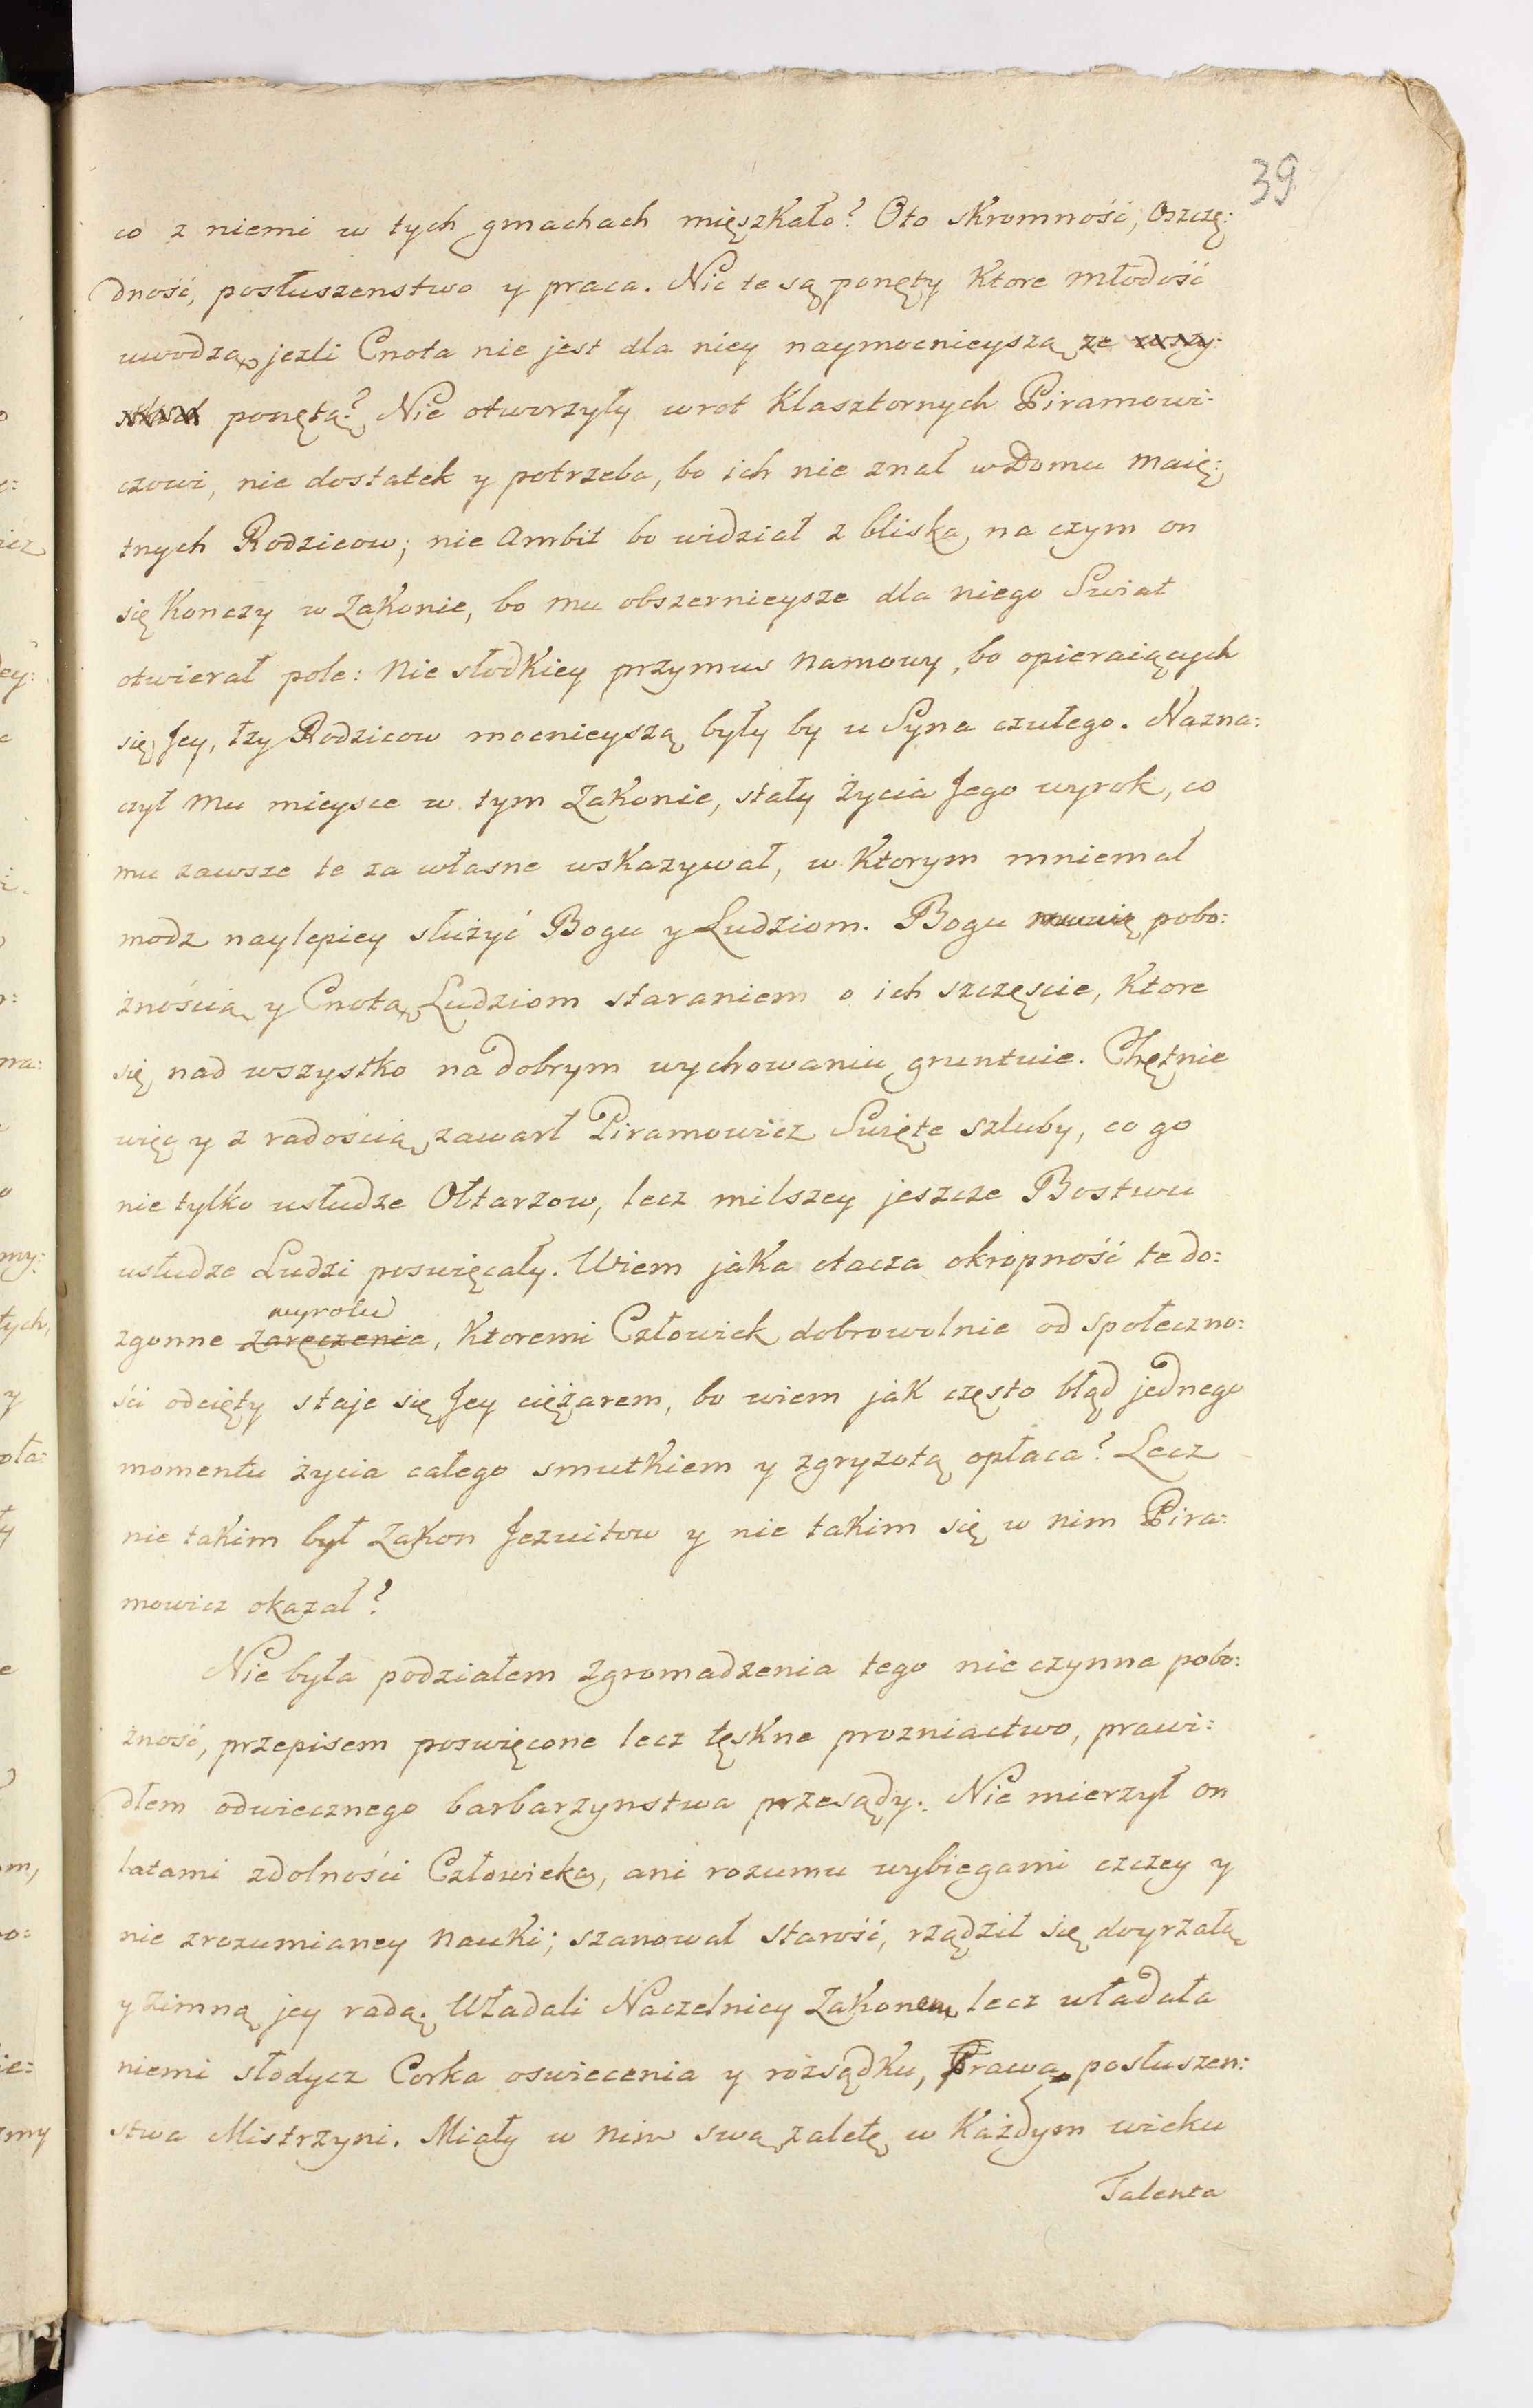 39
co z niemi w tych gmachach mięszkało? Oto skromność, oszczę:
dność, posłuszenstwo y praca. Nie te są ponęty ktore młodość
uwodzą, jezli Cnota nie jest dla niey naymocnieyszą ze wszy:
stkich ponętą? Nie otworzyły wrot klasztornych Piramowi:
czowi, nie dostatek y potrzeba, bo ich nie znał w Domu maię:
tnych Rodzicow; nie Ambit bo widział z bliska, na czym on
się konczy w Zakonie, bo mu obszernieysze dla niego Swiat
otwierał pole: Nie słodkiey przymus namowy, bo opieraiących
się Jey, łzy Rodzicow mocnieyszą były by u Syna czułego. Nazna:
czył mu mieysce w tym Zakonie, stały życia Jego wyrok, co
mu zawsze te za własne wskazywał, w ktorym mniemał
modz naylepiey służyć Bogu y Ludziom. Bogu mowię pobo:
żnością y Cnotą, Ludziom staraniem o ich szczęscie, ktore
się nad wszystko na dobrym wychowaniu gruntuie. Chętnie
więc y z radoscią zawarł Piramowicz Swięte szluby, co go
nie tylko usłudze Ołtarzow, lecz milszey jeszcze Bostwu
usłudze Ludzi poswięcały. Wiem jaka otacza okropność te do:
wyroku
zgonne zaręczenia, ktoremi Człowiek dobrowolnie od społeczno:
ści odcięty staje się Jey ciężarem, bo wiem jak często błąd jednego
momentu życia całego smutkiem y zgryzotą opłaca? Lecz
nie takim był Zakon Jezuitow y nie takim się w nim Pira:
mowicz okazał?
Nie była podziałem zgromadzenia tego nie czynna pobo:
żność, przepisem poswięcone lecz tęskne prozniactwo, prawi:
dłem odwiecznego barbarzynstwa przesądy. Nie mierzył on
latami zdolności Człowieka, ani rozumu wybiegami czczey y
nie zrozumianey nauki; szanował starość, rządził się doyrzałą
y zimną jey radą. Władali Naczelnicy Zakonem, lecz władała
niemi słodycz Corka oswiecenia y rozsądku, Prawa posłuszen:
stwa Mistrzyni. Miały w nim swą zaletę w każdym wieku
Talenta